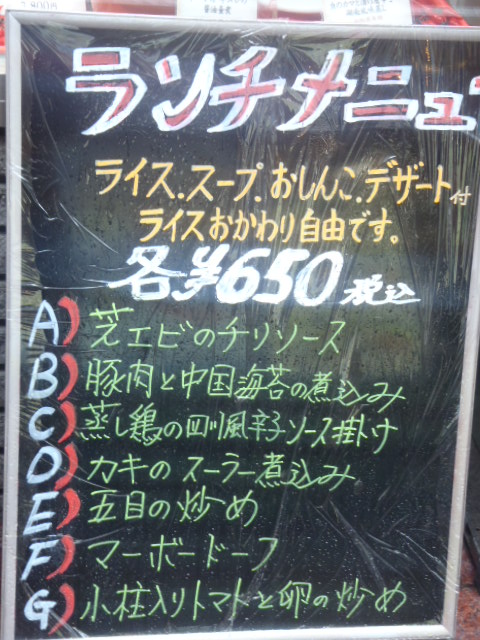 ランチメニュー
ライス.スープ.おしんこ.デザート付
ライスおかわり自由です。
各¥650 税込
A)芝エビのチリソース
B)豚肉と中国海苔の煮込み
C)蒸し鶏の四川風辛子ソース掛け
D)カキのスーラー煮込み
E)五目の炒め
F)マーボードーフ
G)小柱入りトマトと卵の炒め